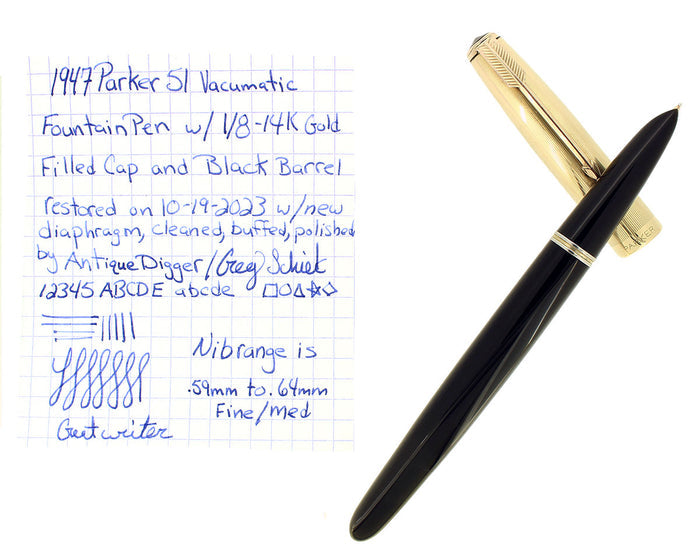 1947 Parker 51 Vacumatic
Fountain Pen w/ 1/8-14K Gold
Filled Cap and Black Barrel
restored on 10-19-2023 w/new
diaphragm, cleaned, buffed, polished
by AntiqueDigger/Greg
12345 ABCDE abcde □○△☆◇
Nib range is
.59mm to .64mm
Fine/med
writer
PARKER